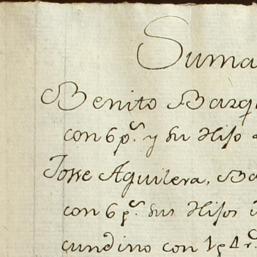 Suma
Benito Barq
con 6 p.s y su Hijo
Josse Aguilera, Ba
con 6 p.s sus Hijos
cundino con 1 p 4 r.s